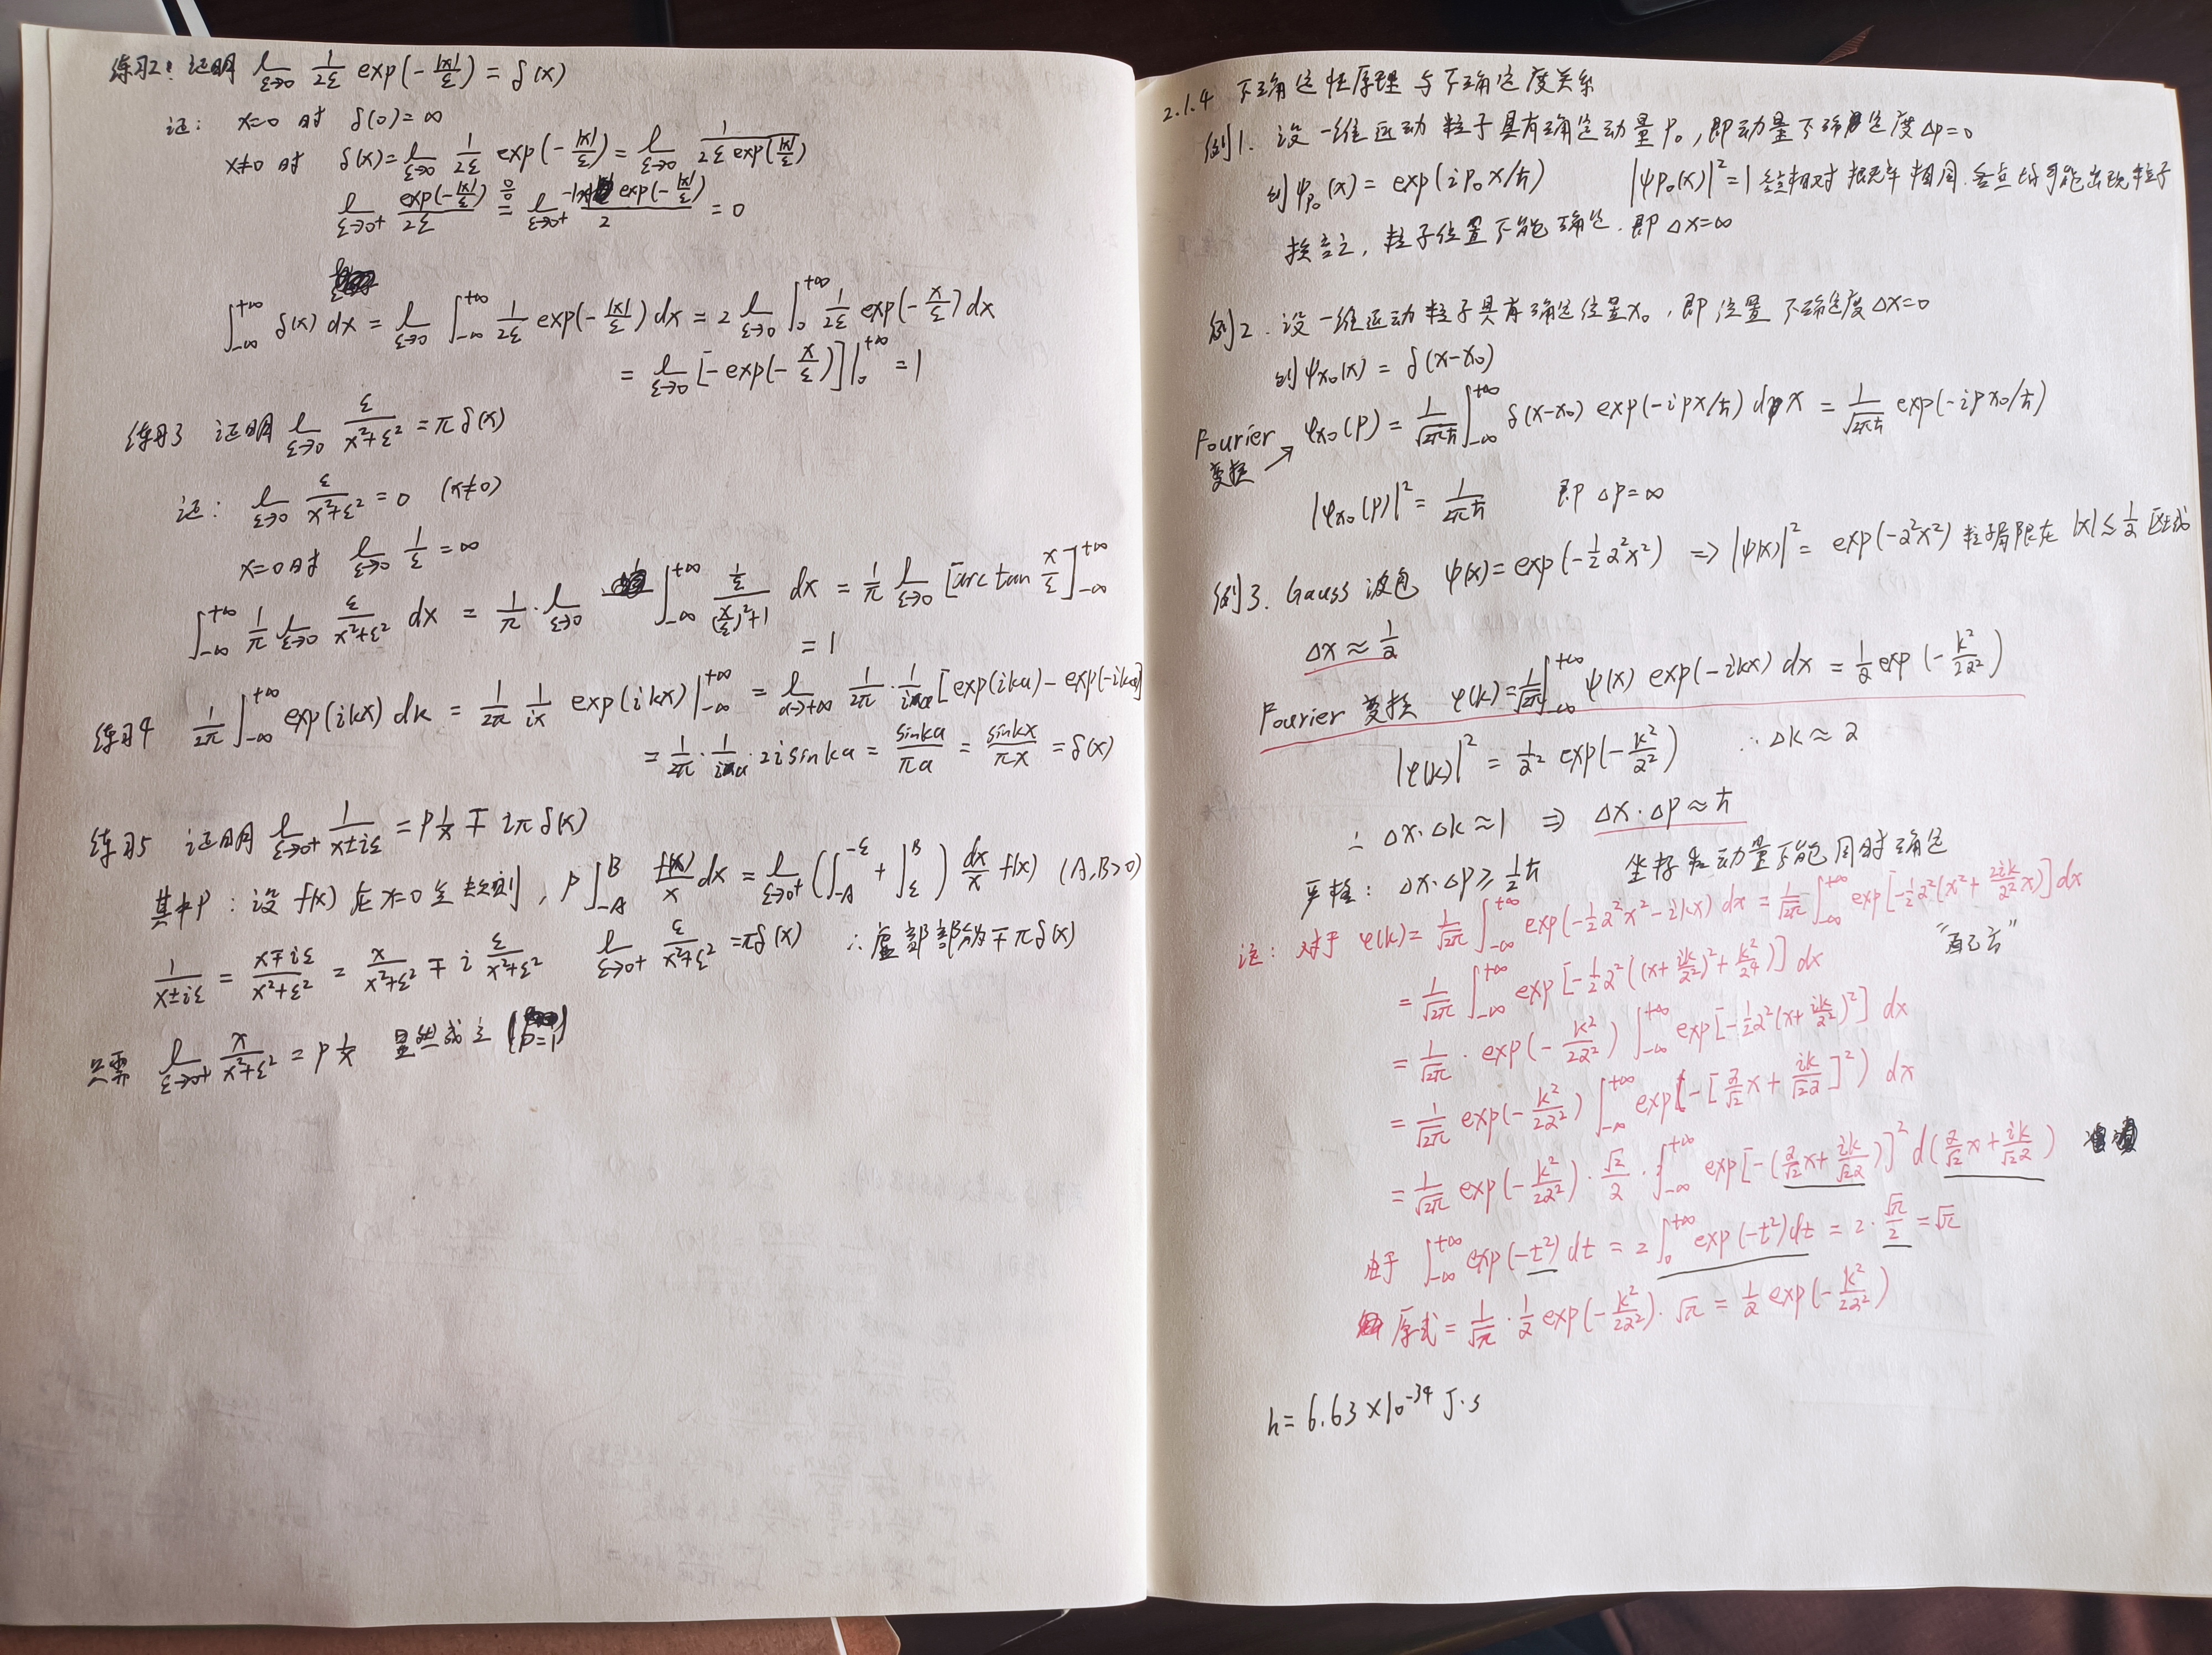 练习2: 证明 l_{ε→0} \frac{1}{2ε} exp(-\frac{|x|}{ε}) = δ(x)
证: x=0 时 δ(0)=∞
x≠0 时 δ(x)= l_{ε→0} \frac{1}{2ε} exp(-\frac{|x|}{ε}) = l_{ε→0} \frac{1}{2ε exp(\frac{|x|}{ε})}
l_{ε→0+} \frac{exp(-\frac{|x|}{ε})}{2ε} \overset{\frac{0}{0}}{=} l_{ε→0+} \frac{-|x| exp(-\frac{|x|}{ε})}{2} = 0
∫_{-∞}^{+∞} δ(x) dx = l_{ε→0} ∫_{-∞}^{+∞} \frac{1}{2ε} exp(-\frac{|x|}{ε}) dx = 2 l_{ε→0} ∫_0^{+∞} \frac{1}{2ε} exp(-\frac{x}{ε}) dx
= l_{ε→0} [-exp(-\frac{x}{ε})]|_0^{+∞} = 1
练习3 证明 l_{ε→0} \frac{ε}{x²+ε²} = πδ(x)
证: l_{ε→0} \frac{ε}{x²+ε²} = 0 (x≠0)
x=0时 l_{ε→0} \frac{1}{ε} = ∞
∫_{-∞}^{+∞} \frac{1}{π} l_{ε→0} \frac{ε}{x²+ε²} dx = \frac{1}{π}·l_{ε→0} ∫_{-∞}^{+∞} \frac{\frac{1}{ε}}{(\frac{x}{ε})²+1} dx = \frac{1}{π} l_{ε→0} [arctan \frac{x}{ε}]_{-∞}^{+∞}
= 1
练习4 \frac{1}{2π} ∫_{-∞}^{+∞} exp(ikx) dk = \frac{1}{2π} \frac{1}{ix} exp(ikx)|_{-∞}^{+∞} = l_{a→+∞} \frac{1}{2π}·\frac{1}{ia} [exp(ika)-exp(-ika)]
= \frac{1}{2π}·\frac{1}{ia}·2i sinka = \frac{sinka}{πa} = \frac{sinkx}{πx} = δ(x)
练习5 证明 l_{ε→0+} \frac{1}{x±iε} = P\frac{1}{x} ∓ iπδ(x)
其中P: 设 f(x) 在 x=0 处规则, P∫_{-A}^{B} \frac{f(x)}{x} dx = l_{ε→0+} (∫_{-A}^{-ε} + ∫_{ε}^{B}) \frac{dx}{x} f(x) (A,B>0)
\frac{1}{x±iε} = \frac{x∓iε}{x²+ε²} = \frac{x}{x²+ε²} ∓ i \frac{ε}{x²+ε²} l_{ε→0+} \frac{ε}{x²+ε²} = πδ(x) ∴虚部部分为∓πδ(x)
只需 l_{ε→0+} \frac{x}{x²+ε²} = P\frac{1}{x} 显然成立 (P=1)
2.1.4 不确定性原理与不确定度关系
例1. 设一维运动粒子具有确定动量p₀, 即动量不确定度Δp=0
则 ψ_{p₀}(x) = exp(ip₀x/ħ) |ψ_{p₀}(x)|²=1 各点相对概率相同. 各点均可能出现粒子
换言之, 粒子位置不能确定. 即 Δx=∞
例2. 设一维运动粒子具有确定位置x₀, 即位置不确定度Δx=0
则 ψ_{x₀}(x) = δ(x-x₀)
Fourier变换 → φ_{x₀}(p) = \frac{1}{\sqrt{2πħ}} ∫_{-∞}^{+∞} δ(x-x₀) exp(-ipx/ħ) dx = \frac{1}{\sqrt{2πħ}} exp(-ipx₀/ħ)
|φ_{x₀}(p)|² = \frac{1}{2πħ} 即 Δp=∞
例3. Gauss 波包 ψ(x) = exp(-\frac{1}{2}α²x²) ⇒ |ψ(x)|² = exp(-α²x²) 粒子局限在 |x|≤\frac{1}{α} 区域
Δx≈\frac{1}{α}
Fourier 变换 φ(k) = \frac{1}{\sqrt{2π}} ∫_{-∞}^{+∞} ψ(x) exp(-ikx) dx = \frac{1}{α} exp(-\frac{k²}{2α²})
|φ(k)|² = \frac{1}{α²} exp(-\frac{k²}{α²}) ∴Δk≈α
∴ Δx·Δk≈1 ⇒ Δx·Δp≈ħ
严格: Δx·Δp≥\frac{1}{2}ħ 坐标和动量不能同时确定
注: 对于 φ(k) = \frac{1}{\sqrt{2π}} ∫_{-∞}^{+∞} exp(-\frac{1}{2}α²x²-ikx) dx = \frac{1}{\sqrt{2π}} ∫_{-∞}^{+∞} exp[-\frac{1}{2}α²(x²+\frac{2ik}{α²}x)] dx
"配方"
= \frac{1}{\sqrt{2π}} ∫_{-∞}^{+∞} exp[-\frac{1}{2}α²((x+\frac{ik}{α²})²+\frac{k²}{α⁴})] dx
= \frac{1}{\sqrt{2π}}·exp(-\frac{k²}{2α²}) ∫_{-∞}^{+∞} exp[-\frac{1}{2}α²(x+\frac{ik}{α²})²] dx
= \frac{1}{\sqrt{2π}} exp(-\frac{k²}{2α²}) ∫_{-∞}^{+∞} exp(-[\frac{α}{\sqrt{2}}x+\frac{ik}{\sqrt{2}α}]²) dx
= \frac{1}{\sqrt{2π}} exp(-\frac{k²}{2α²})·\frac{\sqrt{2}}{α}·∫_{-∞}^{+∞} exp[-(\frac{α}{\sqrt{2}}x+\frac{ik}{\sqrt{2}α})]² d(\frac{α}{\sqrt{2}}x+\frac{ik}{\sqrt{2}α})
由于 ∫_{-∞}^{+∞} exp(-t²) dt = 2∫_0^{+∞} exp(-t²)dt = 2·\frac{\sqrt{π}}{2} = \sqrt{π}
原式 = \frac{1}{\sqrt{π}}·\frac{1}{α} exp(-\frac{k²}{2α²})·\sqrt{π} = \frac{1}{α} exp(-\frac{k²}{2α²})
h = 6.63×10⁻³⁴ J·s